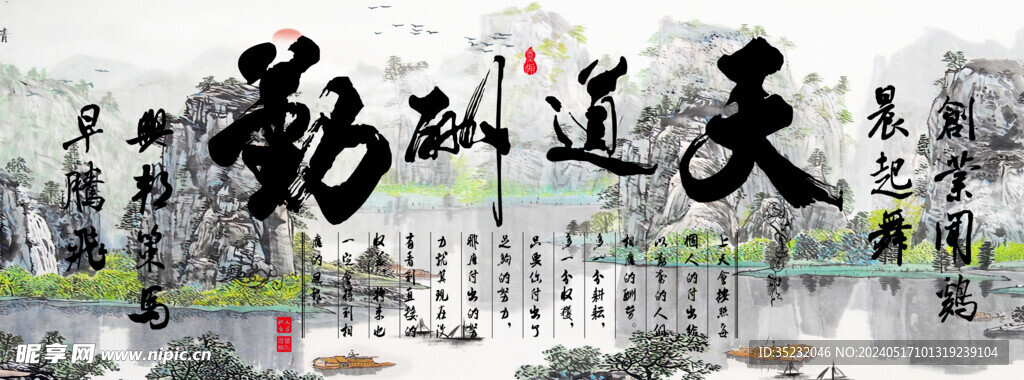 創業聞鷄
晨起舞
天道酬勤
上天會按照每
個人的付出給
以勤奮的人们
相應的酬劳。
多一分耕耘,
多一分收獲,
只要你付出了
足夠的劳力,
那應付出的努
力就算現在沒
有看到直接的
收益,將來也
一定會得到相
應的回報。
興邦策馬
早騰飛
昵享网 www.nipic.cn
ID:35232046 NO:20240517101319239104